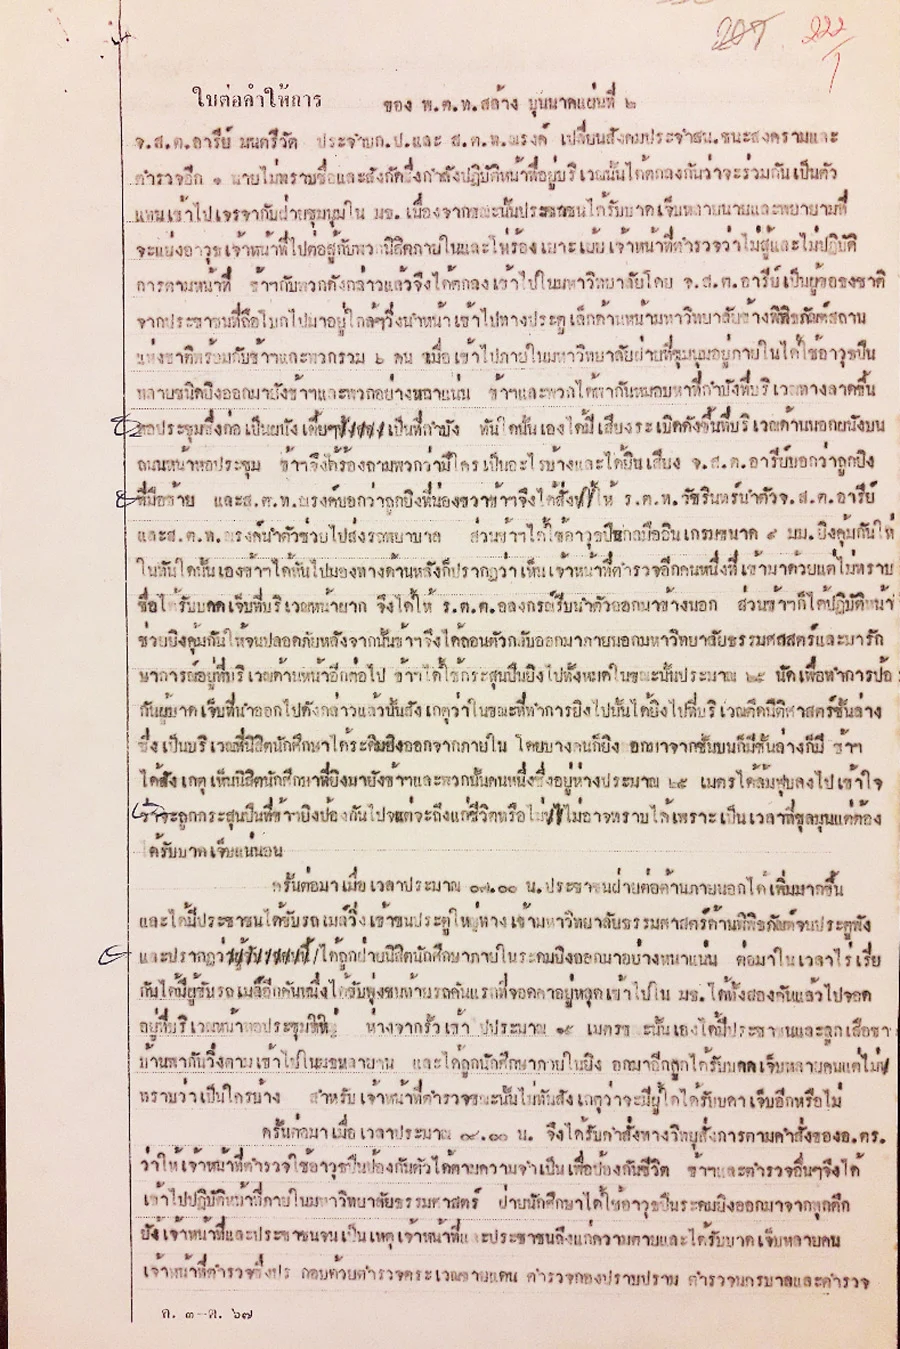 222
ใบต่อคำให้การ ของ พ.ต.ท.สล้าง บุนนาคแผ่นที่ ๒
จ.ส.ต.อารีย์ มนตรีวัต ประจำบก.ป.และ ส.ต.ท.ณรงค์ เปลี่ยนสังคมประจำสน.ชนะสงครามและ
ตำรวจอีก ๑ นายไม่ทราบชื่อและสังกัดซึ่งกำลังปฏิบัติหน้าที่อยู่บริเวณนั้นได้ตกลงกันว่าจะร่วมกันเป็นตัว
แทนเข้าไปเจรจากับฝ่ายชุมนุมใน มธ. เนื่องจากขณะนั้นประชาชนได้รับบาดเจ็บหลายนายและพยายามที่
จะแย่งอาวุธเจ้าหน้าที่ไปต่อสู้กับพวกนิสิตภายในและโห่ร้องเยาะเย้ยเจ้าหน้าที่ตำรวจว่าไม่สู้และไม่ปฏิบัติ
การตามหน้าที่ ข้าฯกับพวกดังกล่าวแล้วจึงได้ตกลงเข้าไปในมหาวิทยาลัยโดย จ.ส.ต.อารีย์เป็นผู้ขอธงชาติ
จากประชาชนที่ถือโบกไปมาอยู่ใกล้ๆวิ่งนำหน้าเข้าไปทางประตูเล็กด้านหน้ามหาวิทยาลัยข้างพิพิธภัณฑ์สถาน
แห่งชาติพร้อมกับข้าฯและพวกรวม ๖ คน เมื่อเข้าไปภายในมหาวิทยาลัยฝ่ายที่ชุมนุมอยู่ภายในได้ใช้อาวุธปืน
หลายชนิดยิงออกมายังข้าฯและพวกอย่างหนาแน่น ข้าฯและพวกได้พากันหมอบหาที่กำบังที่บริเวณทางลาดขึ้น
หอประชุมซึ่งก่อเป็นผนังเตี้ยๆเป็นที่กำบัง ทันใดนั้นเองได้มีเสียงระเบิดดังขึ้นที่บริเวณด้านนอกผนังบน
ถนนหน้าหอประชุม ข้าฯจึงได้ร้องถามพวกว่ามีใครเป็นอะไรบ้างและได้ยินเสียง จ.ส.ต.อารีย์บอกว่าถูกยิง
ที่มือซ้าย และส.ต.ท.ณรงค์บอกว่าถูกยิงที่น่องขวาข้าฯจึงได้สั่งให้ ร.ต.ท.วัชรินทร์นำตัวจ.ส.ต.อารีย์
และส.ต.ท.ณรงค์นำตัวช่วยไปส่งรถพยาบาล ส่วนข้าฯได้ใช้อาวุธปืนกลมืออินเกรมขนาด ๙ มม.ยิงคุ้มกันให้
ในทันใดนั้นเองข้าฯได้หันไปมองทางด้านหลังก็ปรากฏว่าเห็นเจ้าหน้าที่ตำรวจอีกคนหนึ่งที่เข้ามาด้วยแต่ไม่ทราบ
ชื่อได้รับบาดเจ็บที่บริเวณหน้าผาก จึงได้ให้ ร.ต.ต.อลงกรณ์รีบนำตัวออกมาข้างนอก ส่วนข้าฯก็ได้ปฏิบัติหน้า
ช่วยยิงคุ้มกันให้จนปลอดภัยหลังจากนั้นข้าฯจึงได้ถอนตัวกลับออกมาภายนอกมหาวิทยาลัยธรรมศาสตร์และมารัก
ษาการณ์อยู่ที่บริเวณด้านหน้าอีกต่อไป ข้าฯได้ใช้กระสุนปืนยิงไปทั้งหมดในขณะนั้นประมาณ ๒๕ นัดเพื่อทำการป้อ
กันผู้บาดเจ็บที่นำออกไปดังกล่าวแล้วนั้นสังเกตุว่าในขณะที่ทำการยิงไปนั้นได้ยิงไปที่บริเวณตึกนิติศาสตร์ชั้นล่าง
ซึ่งเป็นบริเวณที่นิสิตนักศึกษาได้ระดมยิงออกจากภายใน โดยบางคนก็ยิง ออกมาจากชั้นบนก็มีชั้นล่างก็มี ข้าฯ
ได้สังเกตุเห็นนิสิตนักศึกษาที่ยิงมายังข้าฯและพวกนั้นคนหนึ่งซึ่งอยู่ห่างประมาณ ๒๕ เมตรได้ล้มฟุบลงไปเข้าใจ
ว่าจะถูกกระสุนปืนที่ข้าฯยิงป้องกันไปจะถึงแก่ชีวิตหรือไม่ไม่อาจทราบได้เพราะเป็นเวลาที่ชุลมุนแต่ต้อง
ได้รับบาดเจ็บแน่นอน
ครั้นต่อมาเมื่อเวลาประมาณ ๐๗.๐๐ น.ประชาชนฝ่ายต่อต้านภายนอกได้เพิ่มมากขึ้น
และได้มีประชาชนได้ขับรถเมล์วิ่งเข้าชนประตูใหญ่ทางเข้ามหาวิทยาลัยธรรมศาสตร์ด้านพิพิธภัณฑ์จนประตูพัง
และปรากฏว่าได้ถูกฝ่ายนิสิตนักศึกษาภายในระดมยิงออกมาอย่างหนาแน่น ต่อมาในเวลาไร่เรี่ย
กันได้มีผู้ขับรถเมล์อีกคันหนึ่งได้ขับพุ่งชนท้ายรถคันแรกที่จอดคาอยู่หลุดเข้าไปใน มธ.ได้ทั้งสองคันแล้วไปจอด
อยู่ที่บริเวณหน้าหอประชุมใหญ่ ห่างจากรั้วเข้าไปประมาณ ๑๕ เมตรขณะนั้นเองได้มีประชาชนและลูกเสือชา
บ้านพากันวิ่งตามเข้าไปในมธหลายคน และได้ถูกนักศึกษาภายในยิง ออกมาอีกถูกได้รับบาดเจ็บหลายคนแต่ไม่
ทราบว่าเป็นใครบ้าง สำหรับเจ้าหน้าที่ตำรวจขณะนั้นไม่ทันสังเกตุว่าจะมีผู้ใดได้รับบาดเจ็บอีกหรือไม่
ครั้นต่อมาเมื่อเวลาประมาณ ๐๘.๐๐ น. จึงได้รับคำสั่งทางวิทยุสั่งการตามคำสั่งของอ.ตร.
ว่าให้เจ้าหน้าที่ตำรวจใช้อาวุธปืนป้องกันตัวได้ตามความจำเป็นเพื่อป้องกันชีวิต ข้าฯและตำรวจอื่นๆจึงได้
เข้าไปปฏิบัติหน้าที่ภายในมหาวิทยาลัยธรรมศาสตร์ ฝ่ายนักศึกษาได้ใช้อาวุธปืนระดมยิงออกมาจากทุกตึก
ยังเจ้าหน้าที่และประชาชนจนเป็นเหตุเจ้าหน้าที่และประชาชนถึงแก่ความตายและได้รับบาดเจ็บหลายคน
เจ้าหน้าที่ตำรวจซึ่งประกอบด้วยตำรวจตระเวณชายแดน ตำรวจกองปราบปราม ตำรวจนครบาลและตำรวจ
ต. ๓-ต. ๖๗